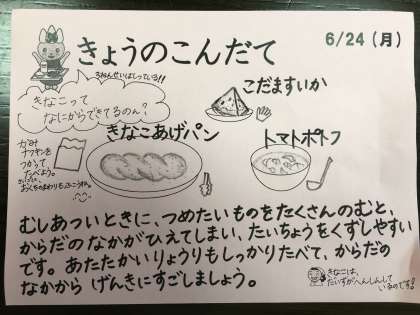 きょうのこんだて
6/24(月)
きなこって
なにからできてるのん?
こだますいか
きなこあげパン
トマトポトフ
かみ
ナフキンを
つかって
たべよう。
おくちのまわりも
むしあついときに、つめたいものをたくさんのむと、
からだのなかがひえてしまい、たいちょうをくずしやすい
です。あたたかいりょうりもしっかりたべて、からだの
なかから げんきにすごしましょう。
きなこは、
だいずがへんしんして
いるのです!